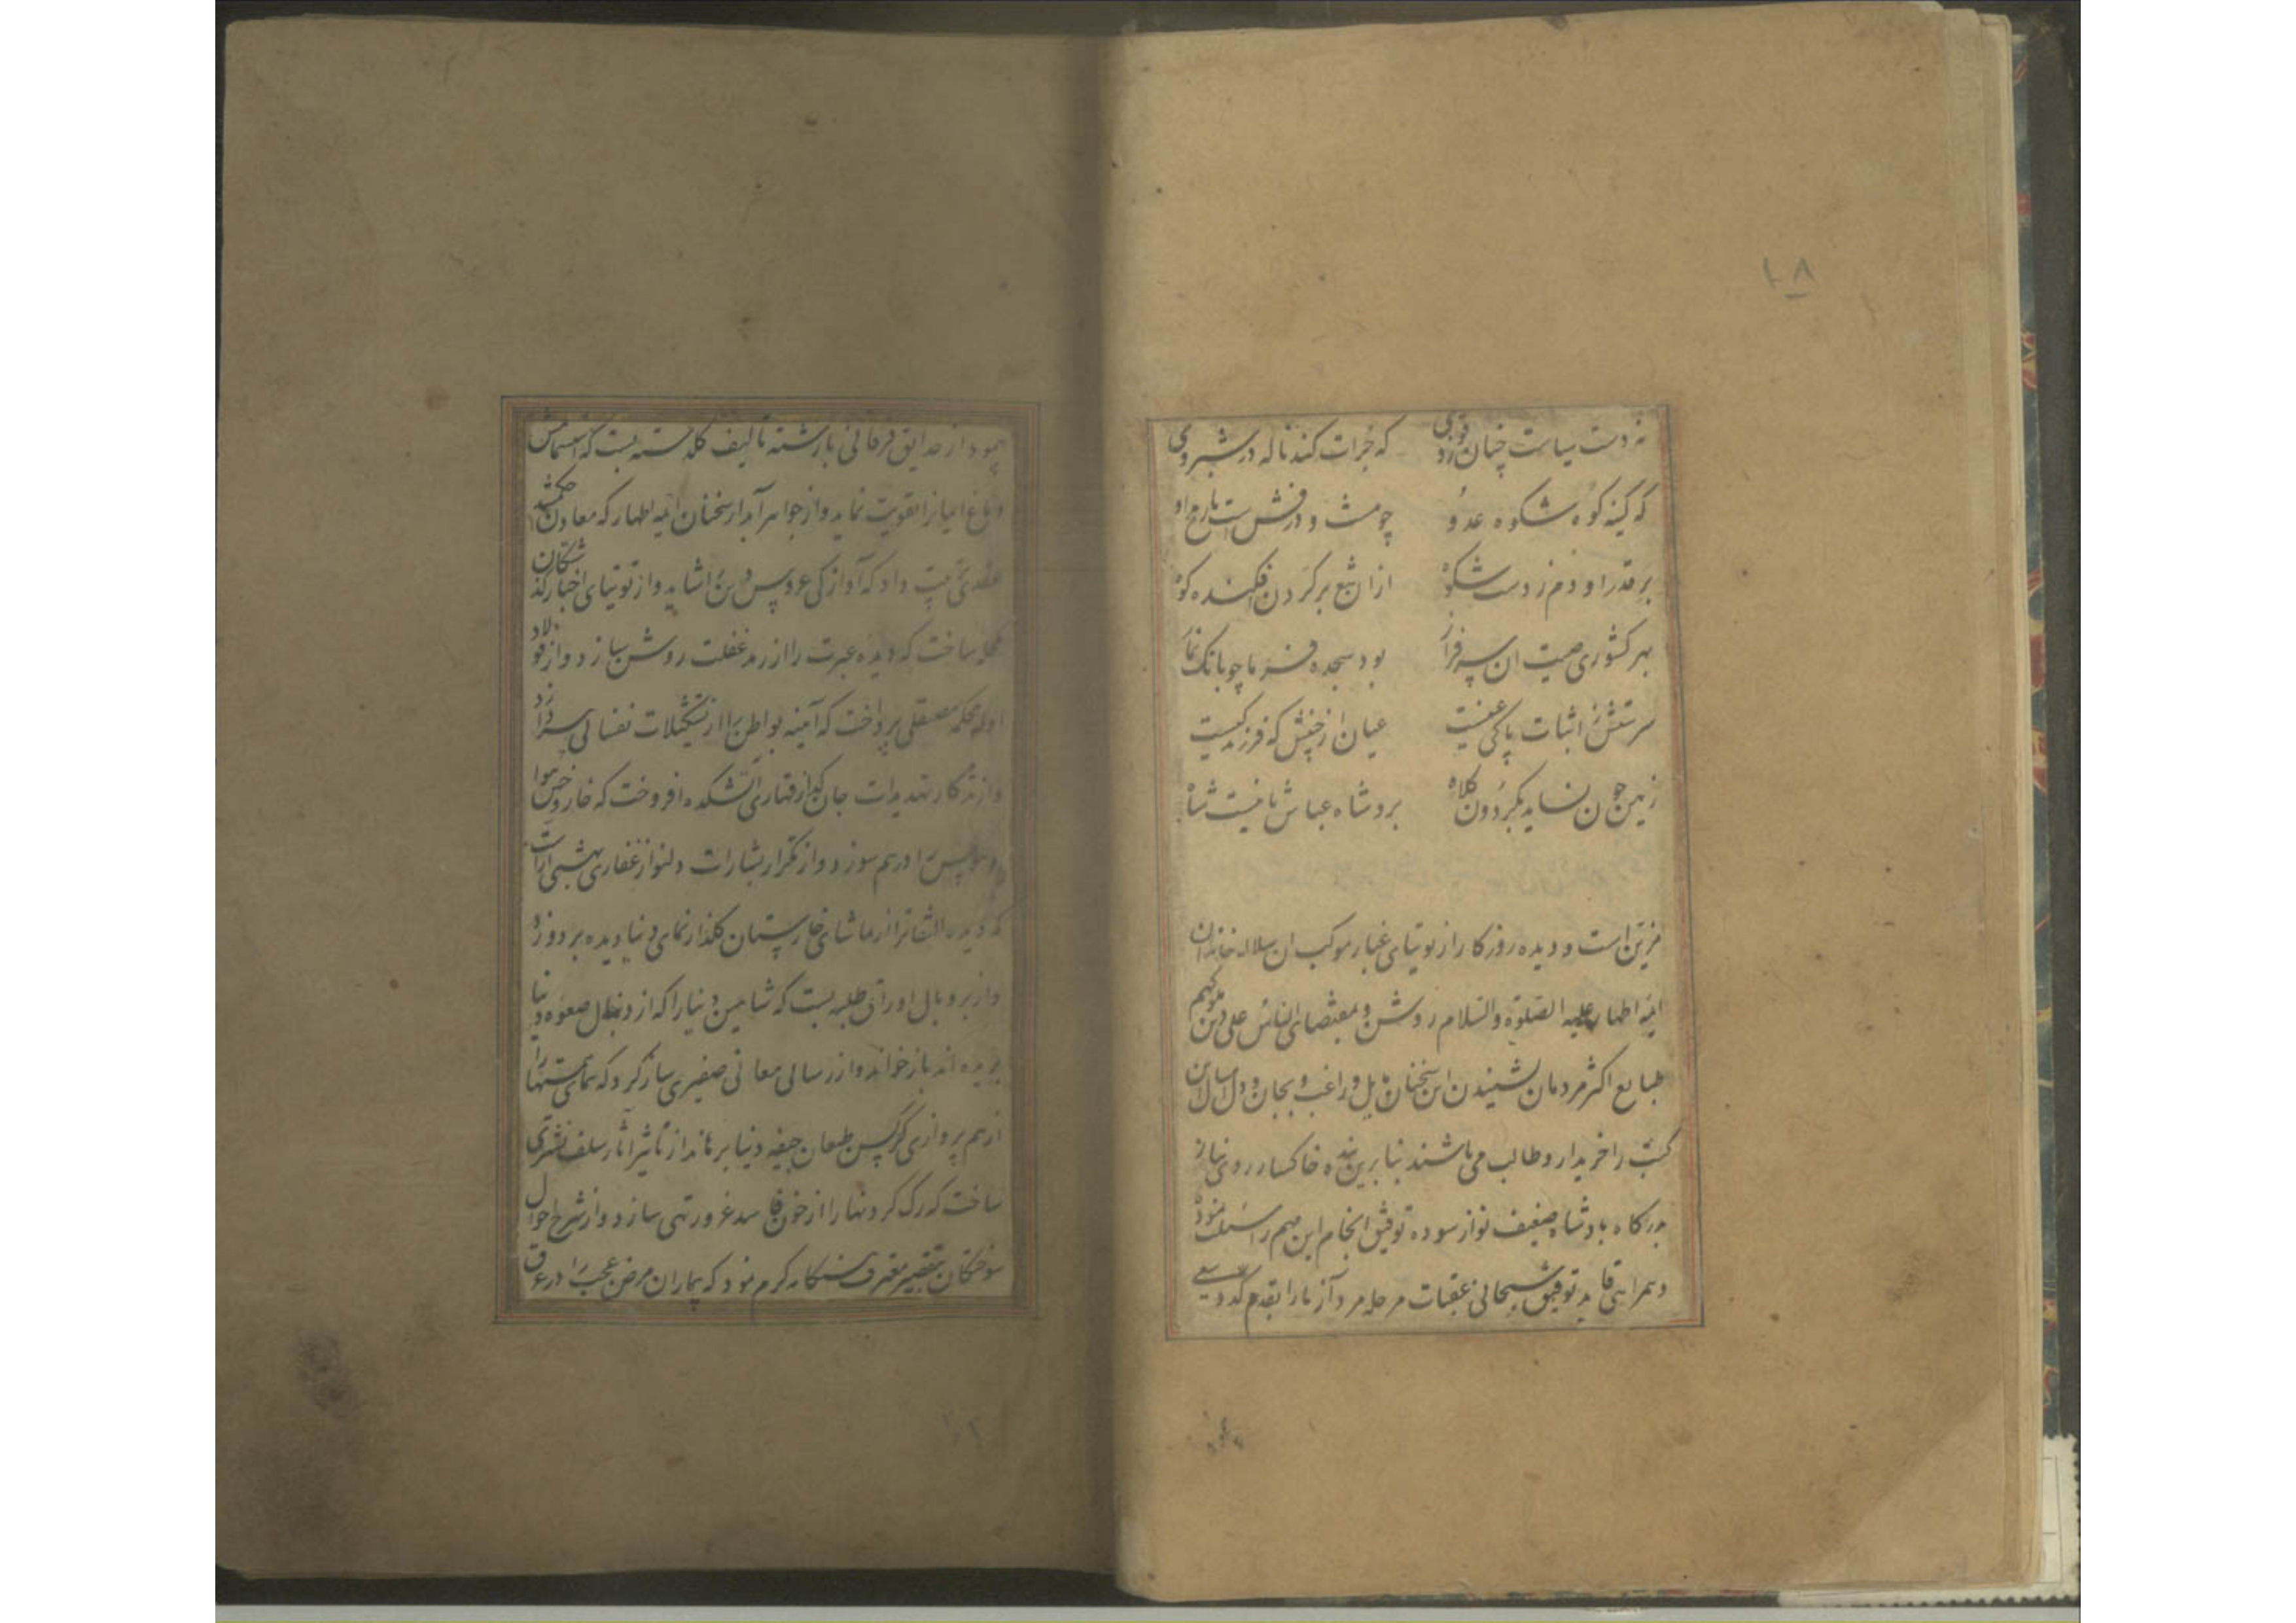 ۱۰۸
نه دست سیاست چنان زد قوی
که جرات کند ناله در شبروی
که کینه کوه شکوه عدو
چو مشت و درفش است با رمح او
بر قدر او دم زدست شکوه
ازان تیغ بر کردن افکنده کوه
بهر کشوری صیت ان سرفراز
بود سجده فرما چو بانک نماز
سرشتش ز اثبات پاکی عفیفیت
عیان از جبینش که فرزند کیست
زمین چون نساید بکردون کلاه
برو شاه عباس ثانیست شاه
مزین است و دیده روزکار از توتیای غبار موکب ان سلاله خاندان
ایمه اطهار علیه الصلوة والسلام روشن و بمقتضای الناس علی دین ملوکهم
طبایع اکثر مردمان بشنیدن این سخنان مایل و راغب و بجان و دل امثال این
کتب را خریدار و طالب می باشند بنا برین بنده خاکسار روی نیاز
بدرکاه پادشاه ضعیف نواز سوده توفیق انجام این مهم را مسئلت نمود
و بهمراهی قاید توفیق سبحانی عقبات مرحله مرد آزما را بقدم کد و سعی
پیمود از حدایق فرقانی با رشته تالیف کلدسته بست که استشمامش
دماغ ایمانرا تقویت نماید و از جواهر آبدار سخنان ایمه اطهار که معادن حکمتند
عقدی ترتیب داد که آوازکی عروس دین را شاید و از توتیای اخبار کذشتکان
کحل ساخت که دیده عبرت را از رمد غفلت روشن سازد و از فولاد
ادله محکمه مصقلی پرداخت که آمینه بواطن را از تشکیلات نفسانی سرا زد
و از تذکار تهدیدات جان کداز قهاری آتشکده افروخت که خار و خس هوا
و هوس را درهم سوزد و از تکرار بشارات دلنواز غفاری بهشتی آراست
که دیده التفاترا از تماشای خارستان کلذار نمای دنیا دیده بر دوزد
و از پر و بال اوراق طبله بست که شاهین دنیا را که از دنبال صعوه دنیا
پریده اند باز خواند و از رسائی معانی صفیری ساز کرد که همای همتها را
از هم پروازی کرکس طبعان جیفه دنیا برهاند از تاثیر آثار سلف نشتری
ساخت که رک کردنها را از خون فاسد غرور تهی سازد و از شرح احوال
سوختکان بتقصیر معترف هنکامه کرم نمود که بیماران مرض عجب را در عرق